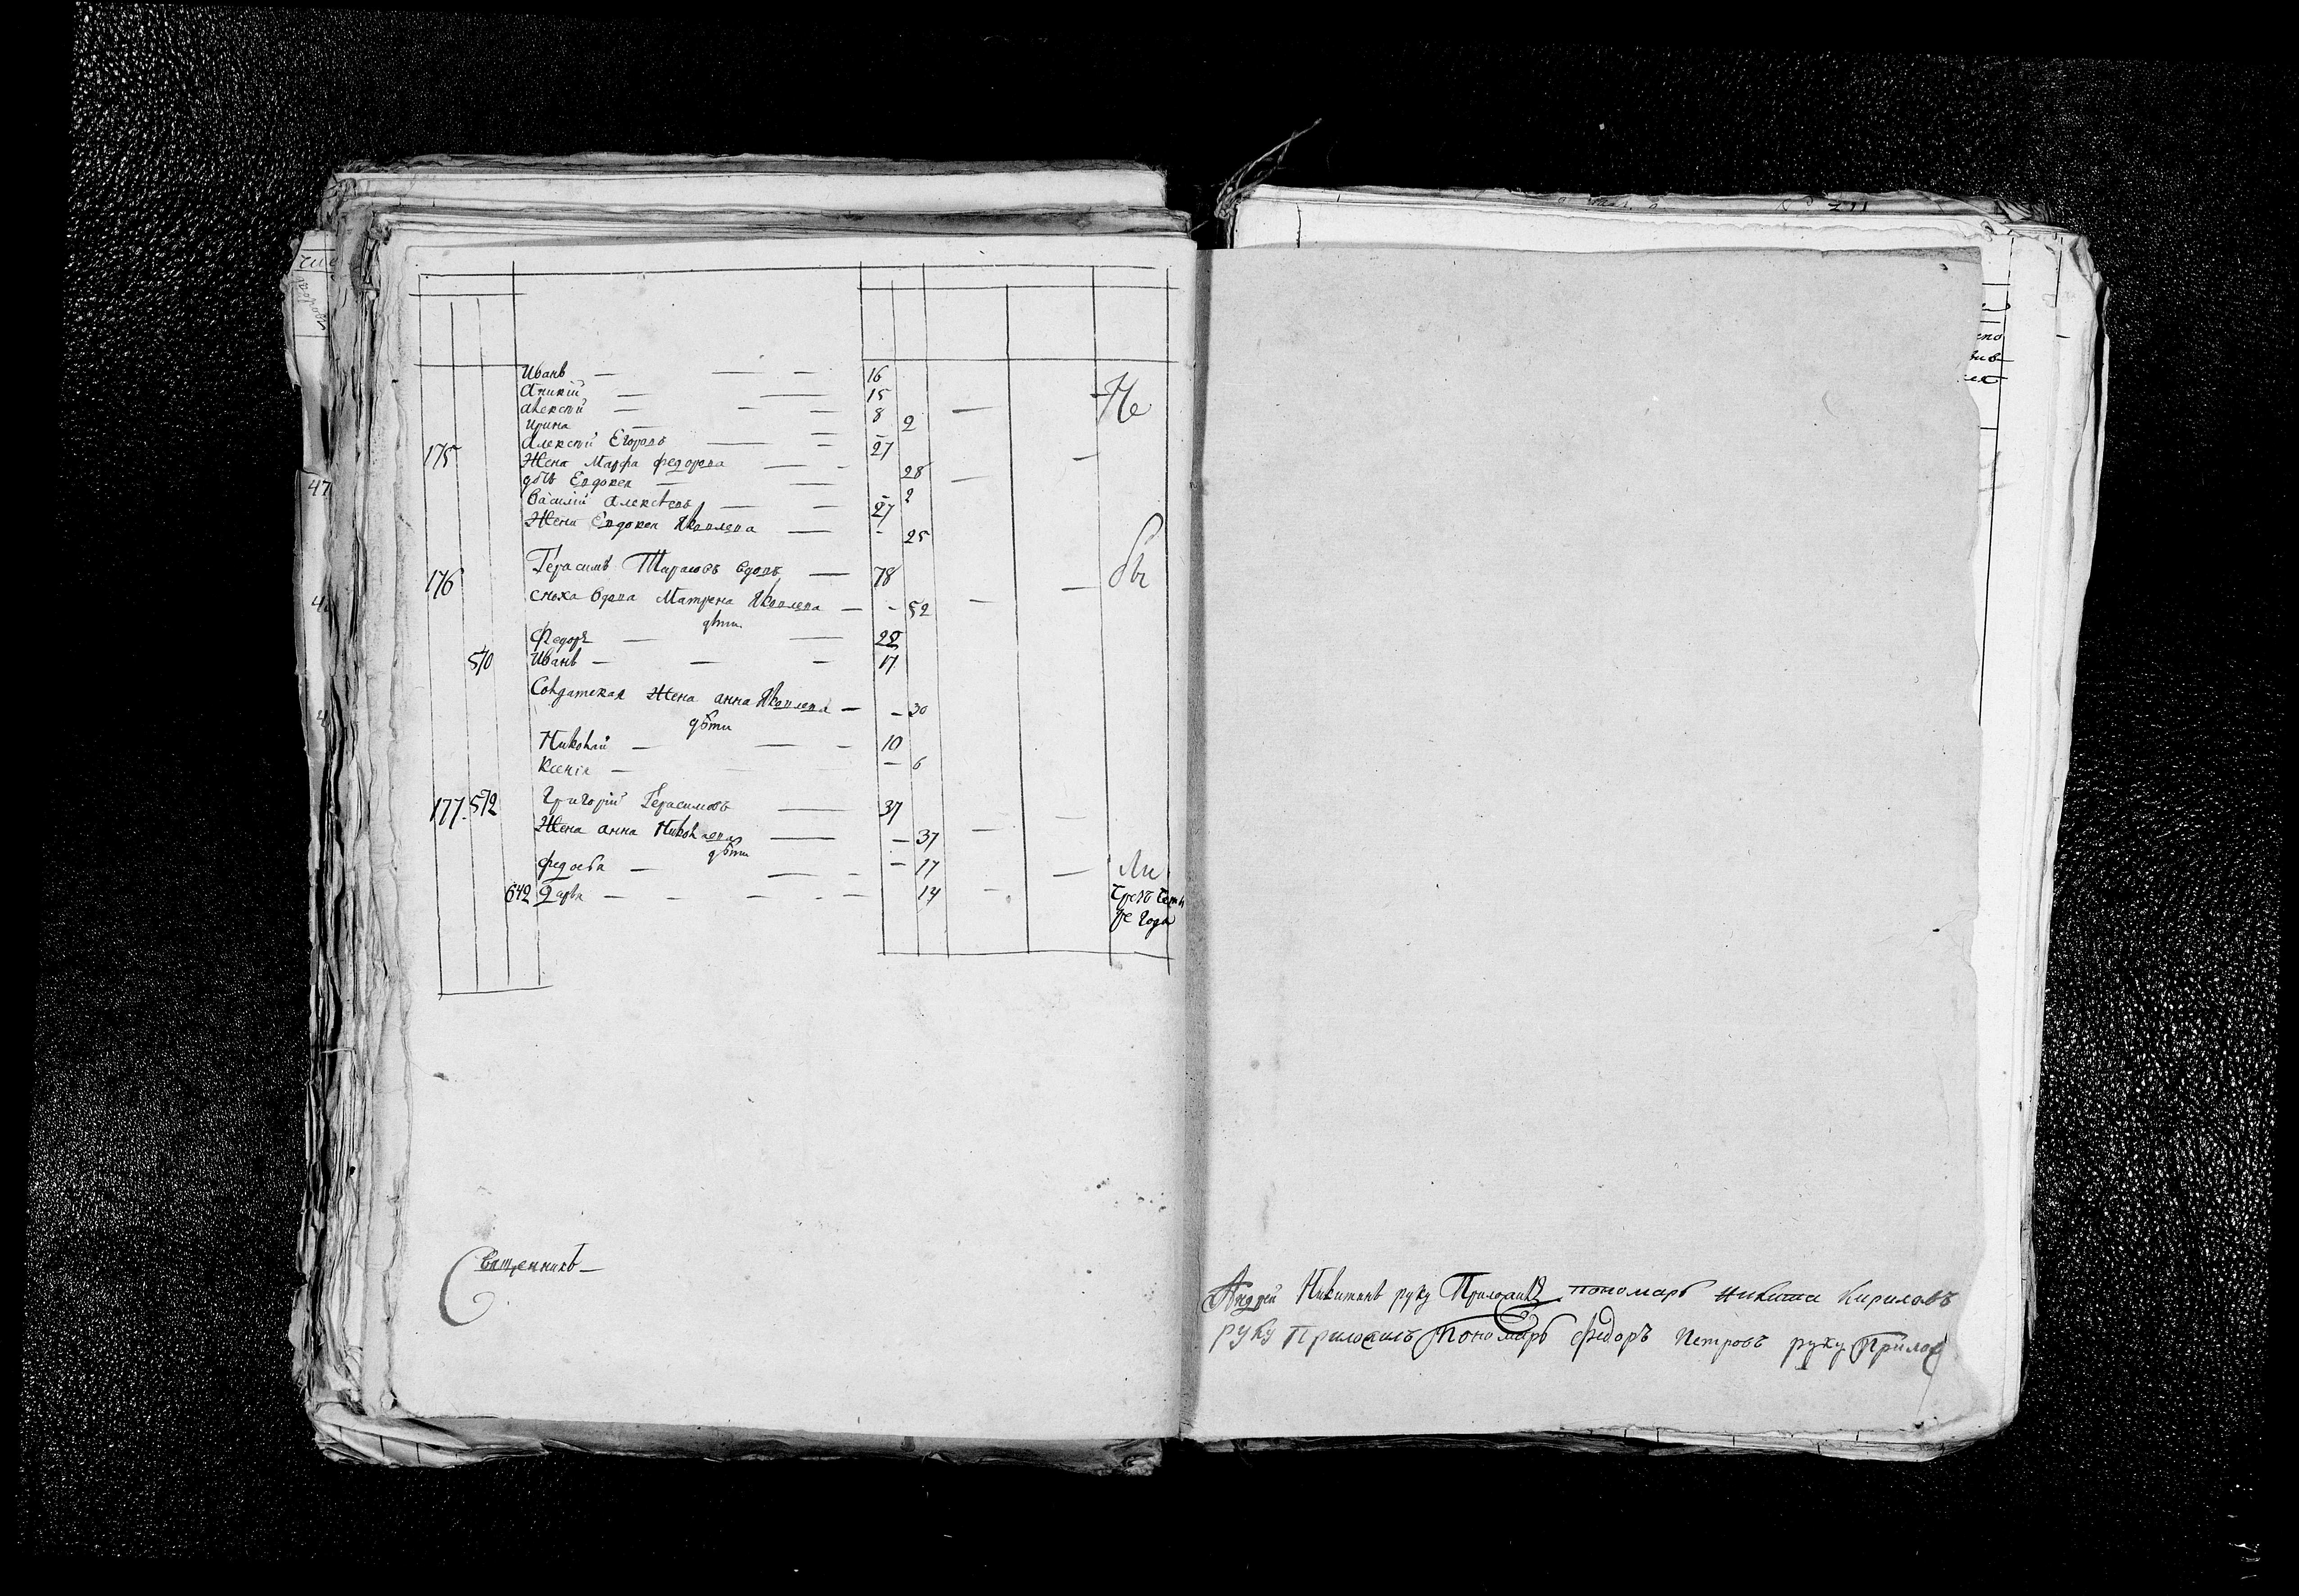 Иванъ — — — 16
Аникій — — 15 — Не
Алексѣй — — — 8
Ирина — — 2
Алексѣй Егоровъ — — 27
175 Жена Марфа Федорова — — 28
дочь Евдокея — — 2
Василій Алексѣевъ — — 27
Жена Евдокея Яковлева — - 25
176 Герасимъ Тарасовъ вдовъ — 78 — бы
сноха вдова Матрена Яковлева — - 52
дѣти
Федоръ — — 22
570 Иванъ — — — 17
Солдатская Жена анна Яковлева — - 30
дѣти
Николай — — — 10
Ксенія — — 6
177. 572 Григорій Герасимовъ — 37
Жена анна Николаева — — 37
дѣти
Федосья — — — — 17 — Ли
642 Дарья — — — — — 14 —
ре года
Священникъ —
Андрей Никитинъ руку Приложилъ пономарь Никита Кириловъ
руку Приложилъ Пономарь Федоръ Петровъ руку Прилож
47